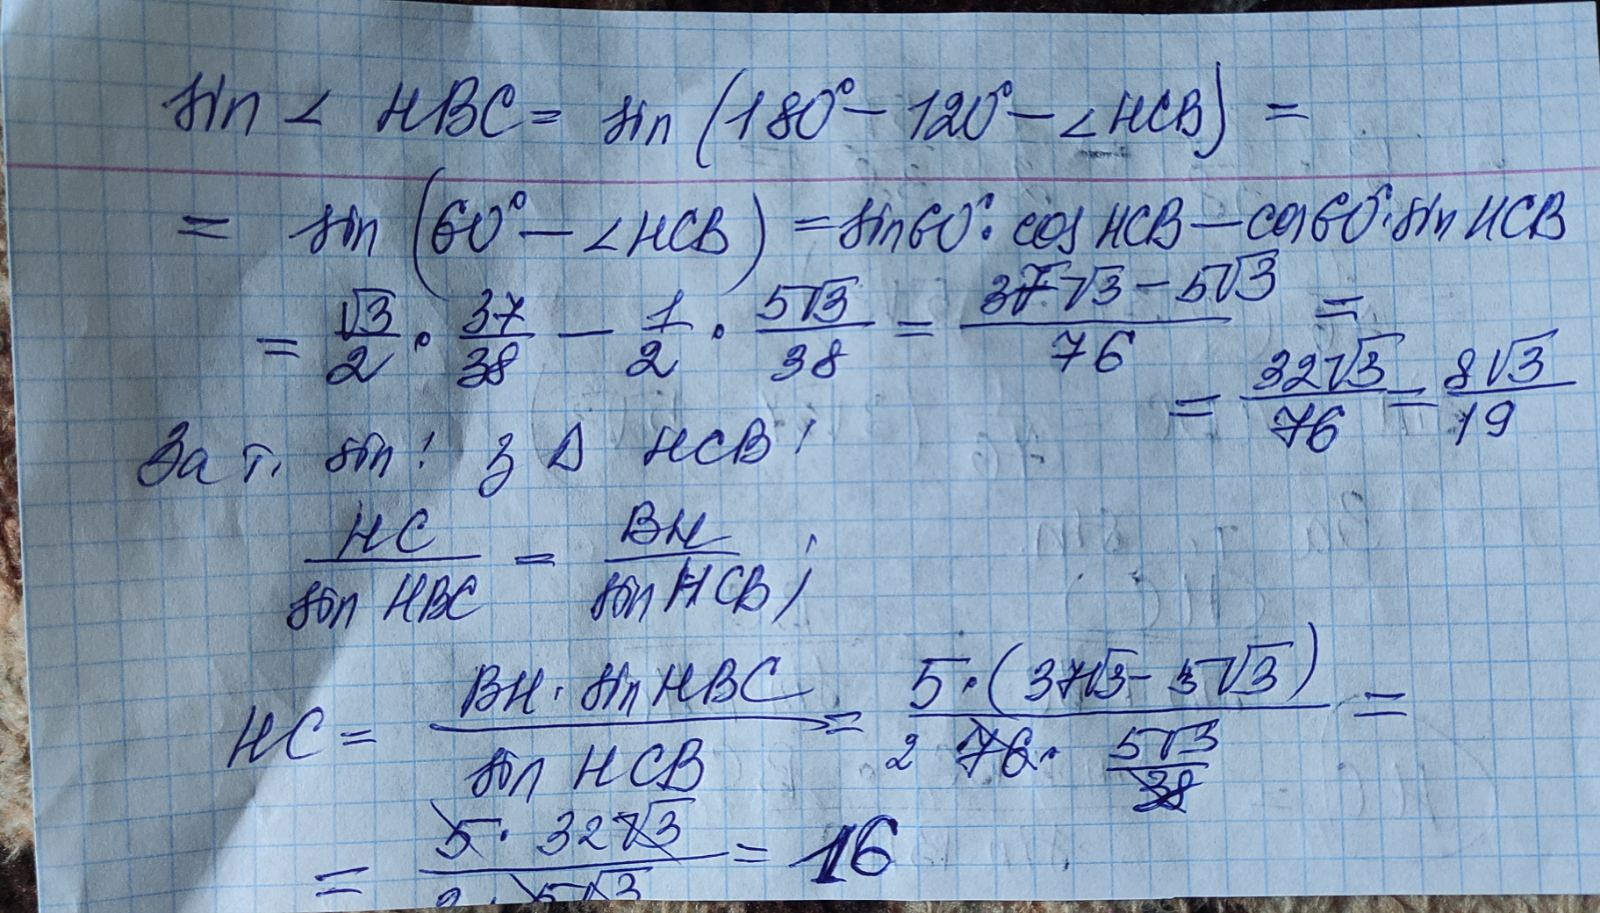 sin < HBC = sin (180° - 120° - <HCB) =
= sin (60° - <HCB) = sin60° · cos HCB - cos60° · sin HCB
= √3/2 · 37/38 - 1/2 · 5√3/38 = (37√3 - 5√3)/76 =
= 32√3/76 = 8√3/19
За т. sin: з Δ HCB:
HC/sin HBC = BH/sin HCB;
HC = BH · sin HBC/sin HCB = 5 · (37√3 - 5√3)/(2 76 · 5√3/38) =
= 5 · 32√3/(2 · 5√3) = 16